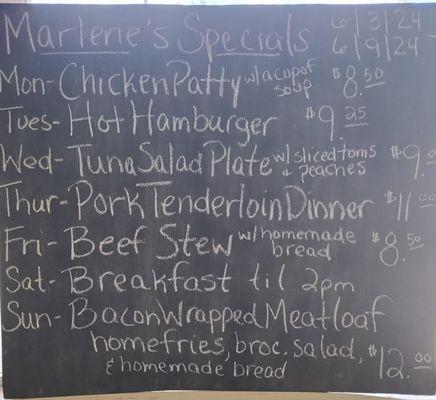 Marlene's Specials 6/3/24 -
6/9/24
Mon- Chicken Patty w/ a cup of soup $8.50
Tues- Hot Hamburger $9.25
Wed- Tuna Salad Plate w/ sliced toms & peaches $9.
Thur- Pork Tenderloin Dinner $11.00
Fri- Beef Stew w/ homemade bread $8.50
Sat- Breakfast til 2pm
Sun- Bacon Wrapped Meatloaf
homefries, broc. salad, $12.00
& homemade bread